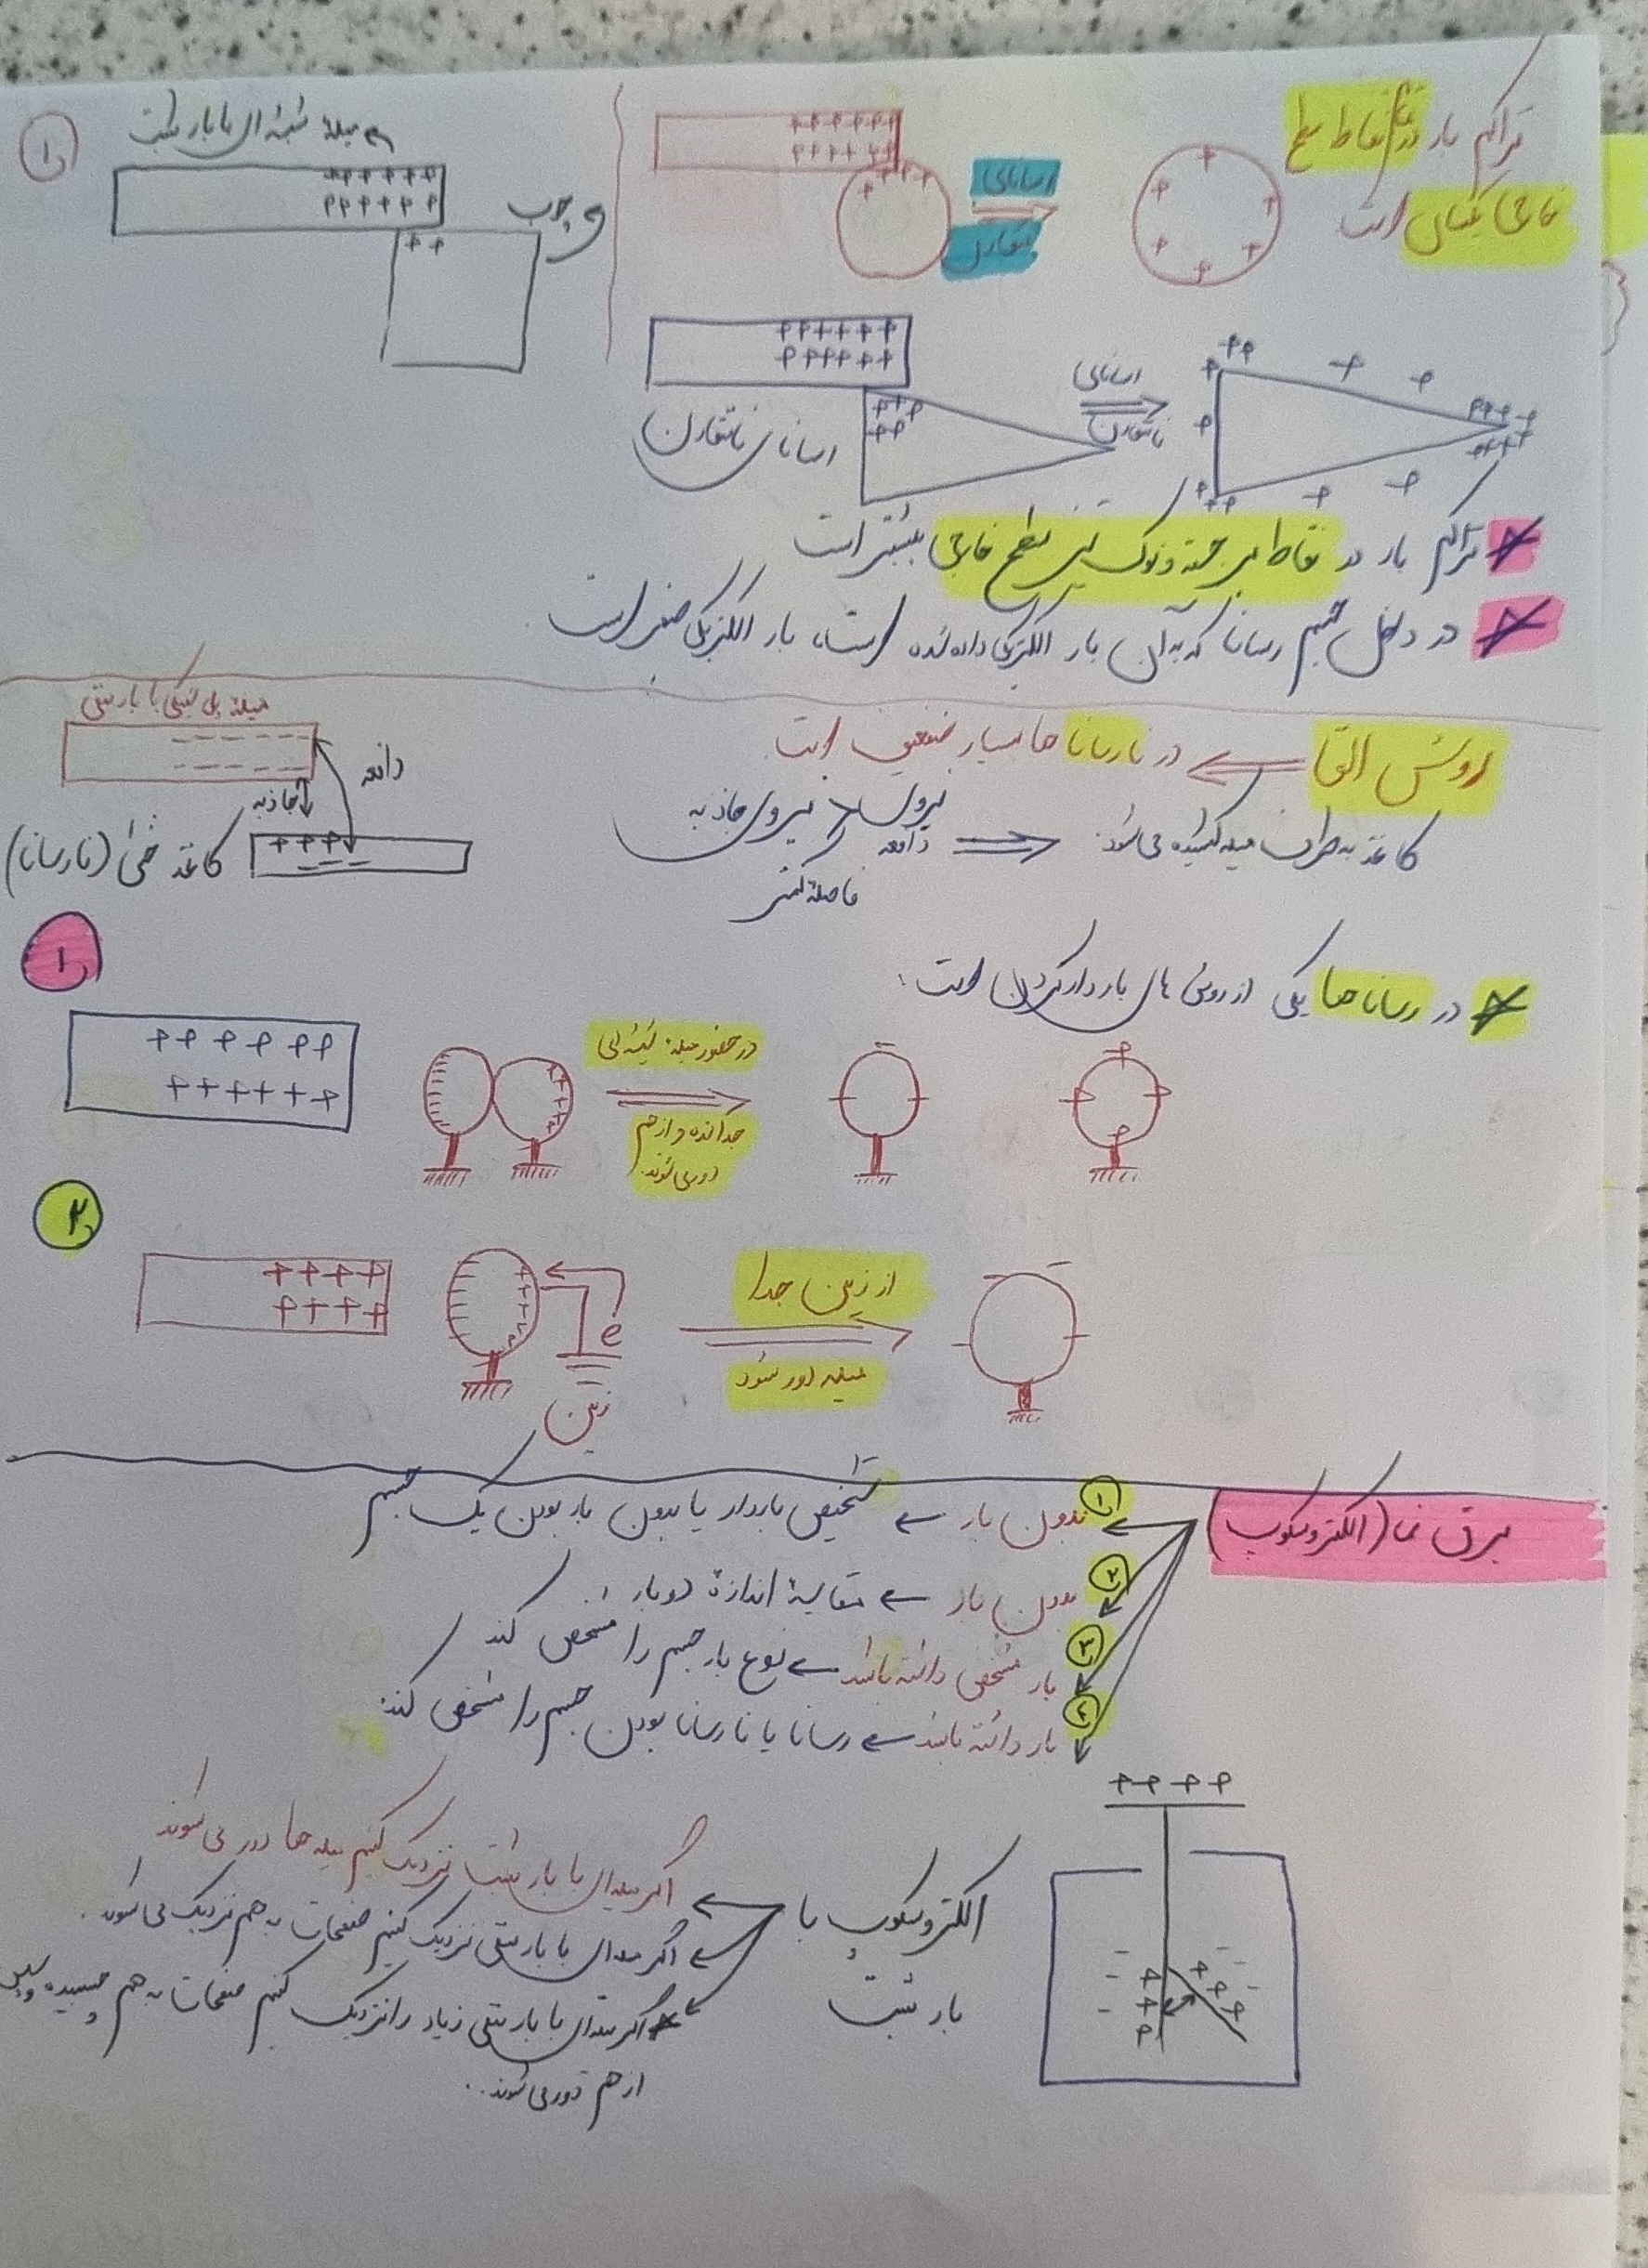 تراکم بار در تمام نقاط سطح
خارجی یکسان است
رسانای
متقارن
۱
میله شیشه‌ای با بار مثبت
چوب
رسانای نامتقارن
رسانای
نامتقارن
تراکم بار در نقاط برجسته و نوک تیز سطح خارجی بیشتر است
در داخل جسم رسانا که به آن بار الکتریکی داده شده است، بار الکتریکی صفر است.
روش القا
در نارساناها بسیار ضعیف است.
میله پلاستیکی با بار منفی
دافعه
جاذبه
کاغذ خنثی (نارسانا)
کاغذ به طرف میله کشیده می‌شود.
نیروی دافعه < نیروی جاذبه
فاصله کمتر
در رساناها یکی از روش های باردار کردن است.
۱
در حضور میله شیشه‌ای
جدا شده و از هم
دور می‌شوند.
۲
e
زمین
از زمین جدا
میله دور شود
برق نما (الکتروسکوپ)
۱ بدون بار ← تشخیص باردار یا بدون بار بودن یک جسم
۲ بدون بار ← مقایسهٔ اندازهٔ دو بار.
۳ بار مشخص داشته باشد ← نوع بار جسم را مشخص کند
۴ بار داشته باشد ← رسانا یا نارسانا بودن جسم را مشخص کند.
الکتروسکوپ با
بار مثبت
اگر میله‌ای با بار مثبت نزدیک کنیم میله ها دور می‌شوند
اگر میله‌ای با بار منفی نزدیک کنیم صفحات به هم نزدیک می‌شوند.
اگر میله‌ای با بار منفی زیاد را نزدیک کنیم صفحات به هم چسبیده و سپس
از هم دور می‌شوند..